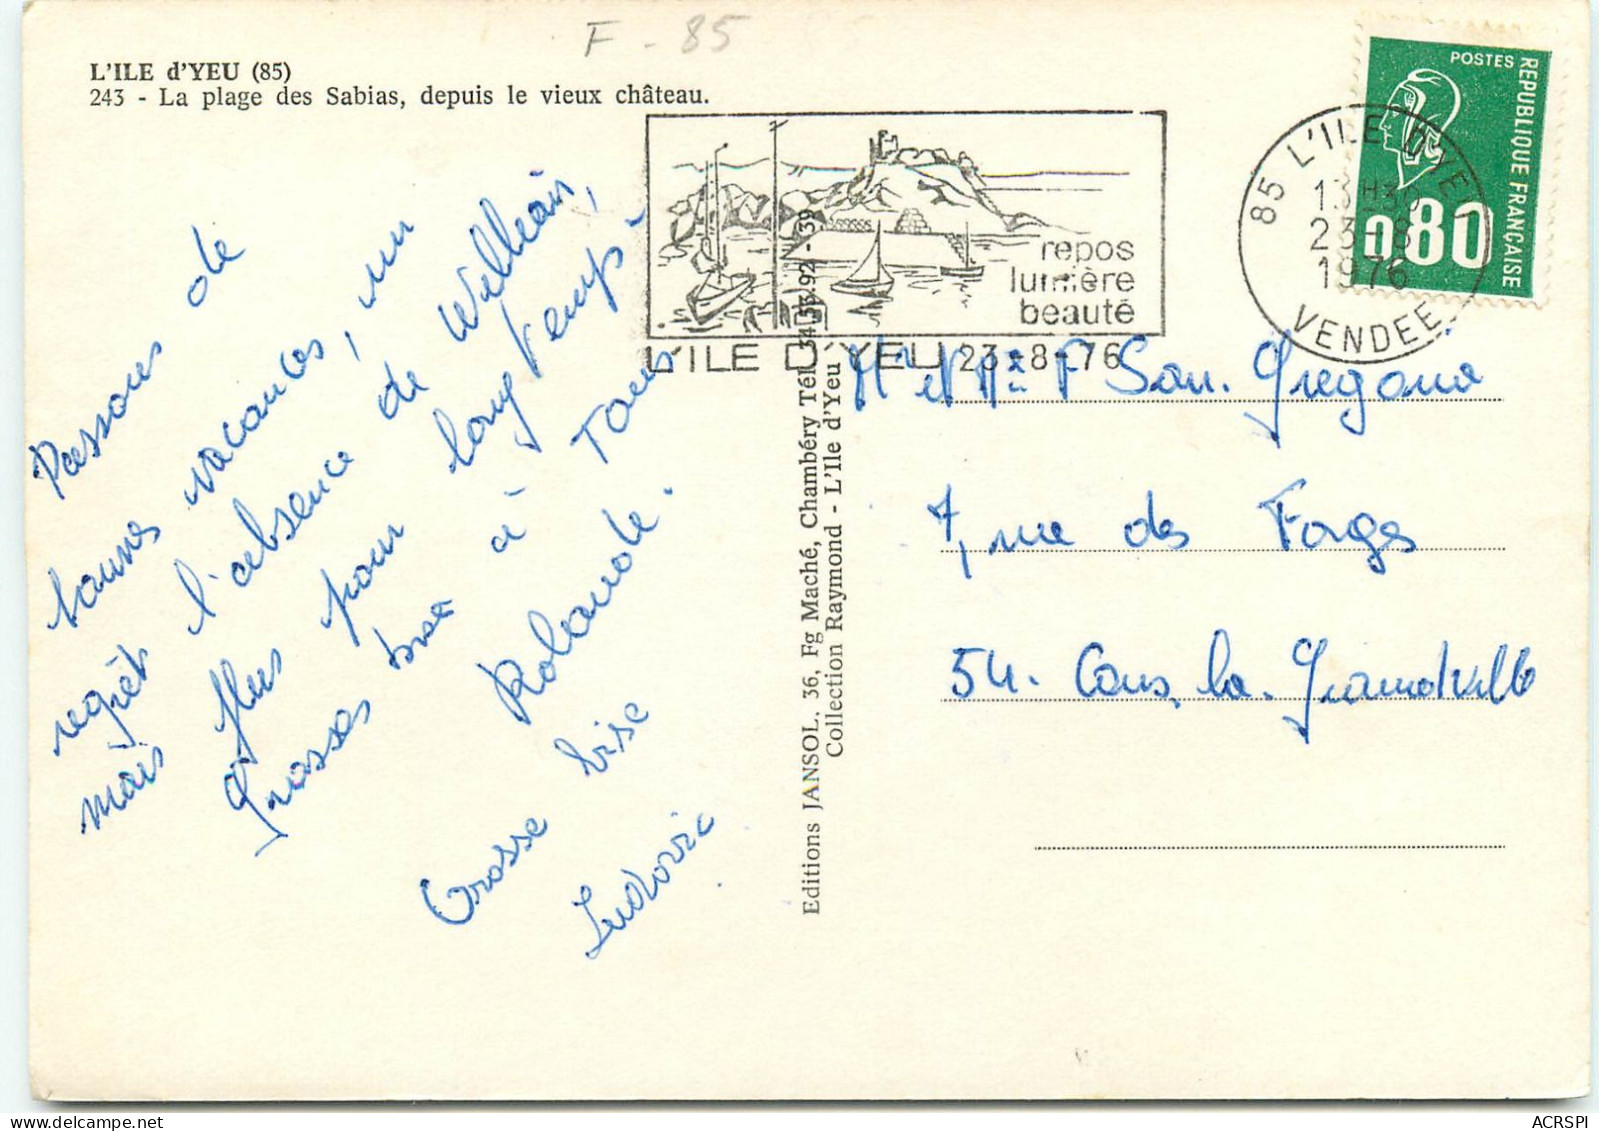 F - 85
L'ILE d'YEU (85)
243 - La plage des Sabias, depuis le vieux château.
POSTES
REPUBLIQUE FRANCAISE
0,80
85 L'ILE D'YEU
13H30
23-8
1976
VENDEE
repos
lumière
beauté
L'ILE D'YEU 23-8-76
Passons de
bonnes vacances, un
regrêt l'absence de William,
mais plus pour long temps -
Grosses bise à Tous
Rolande.
Grosse bise
Ludovic
Editions JANSOL, 36, Fg Maché, Chambéry Tél. 34.53.92 - 39
Collection Raymond - L'Ile d'Yeu
Mr et Mme F San. Gregorio
7, rue des Forges
54. Cons, la. Grandville
ACRSPI